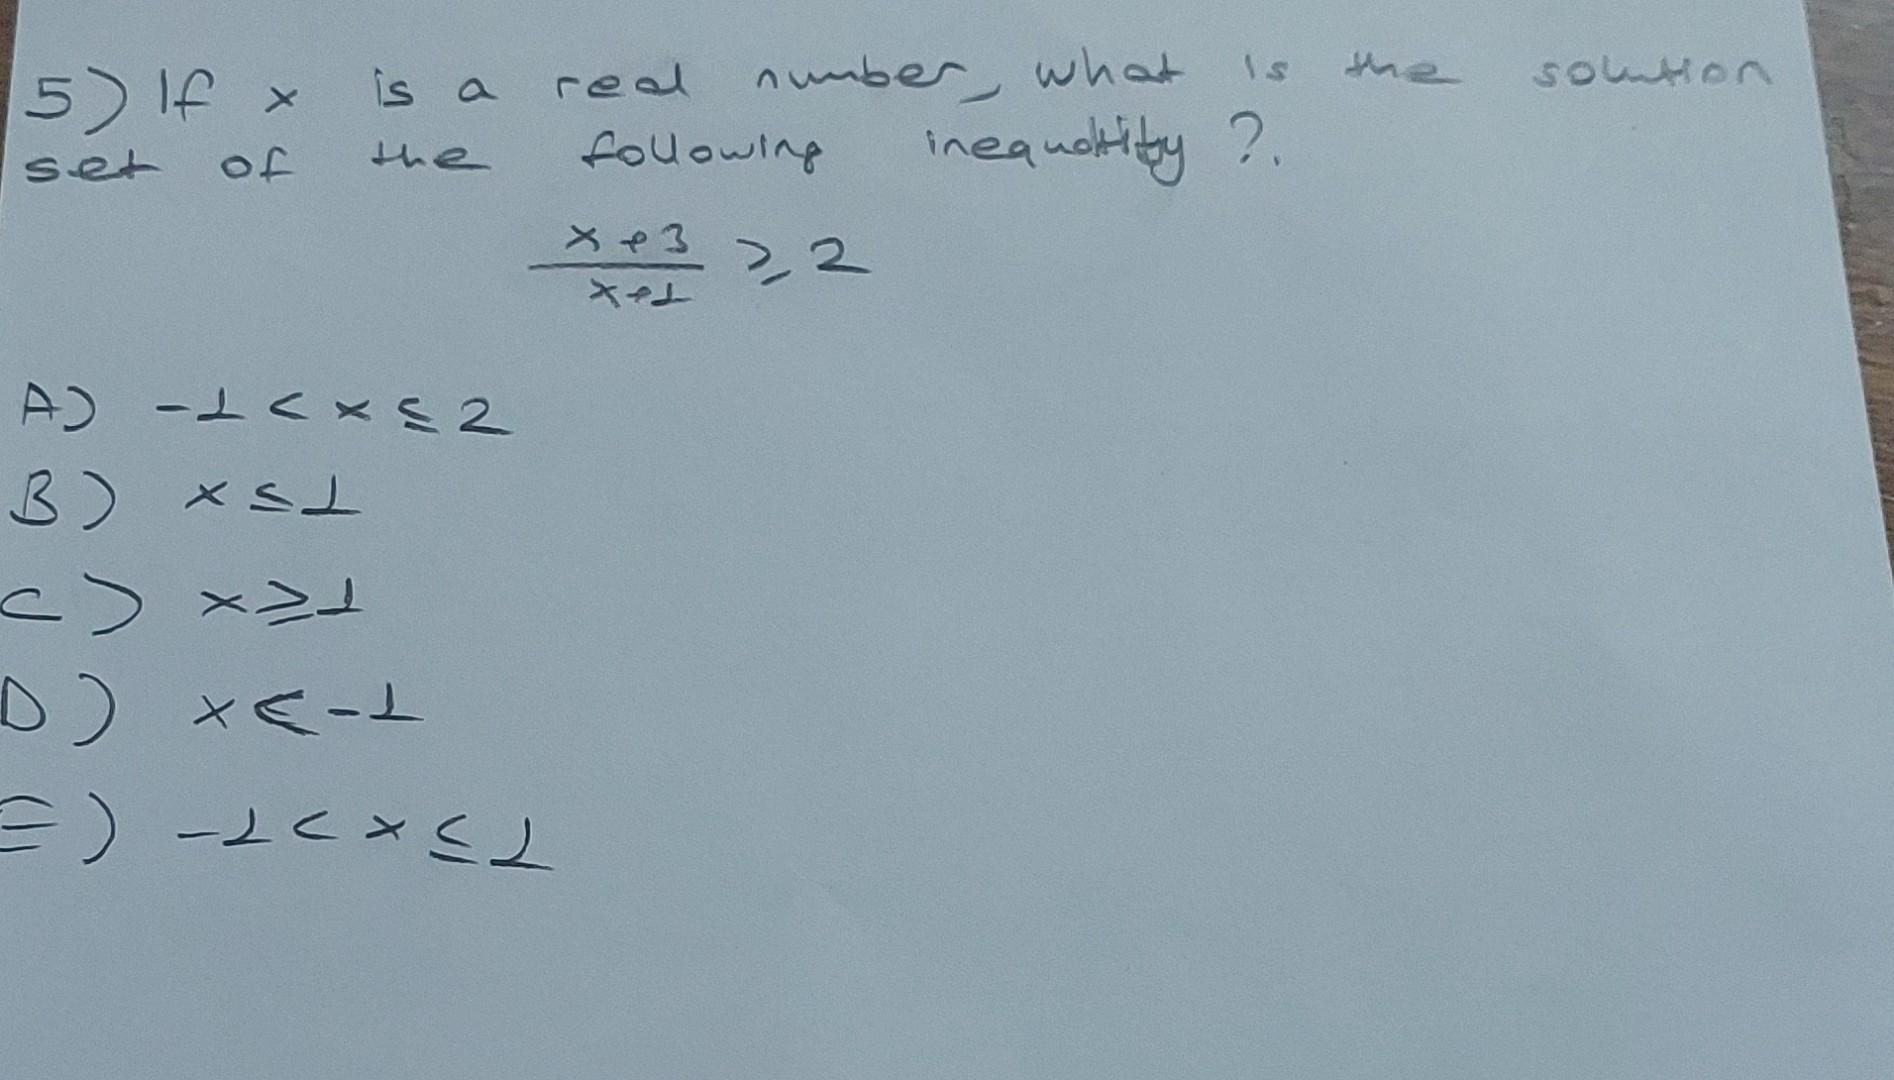 5) If x is a real number, what is the solution
set of the following inequality ?.
x+3
x+1 ≥ 2
A) -1 < x ≤ 2
B) x ≤ 1
C) x ≥ 1
D) x < -1
E) -1 < x ≤ 1